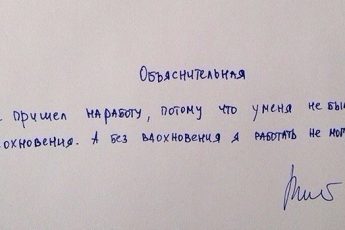 Объяснительная
е пришел на работу, потому что у меня не бы
охновения. А без вдохновения я работать не мог